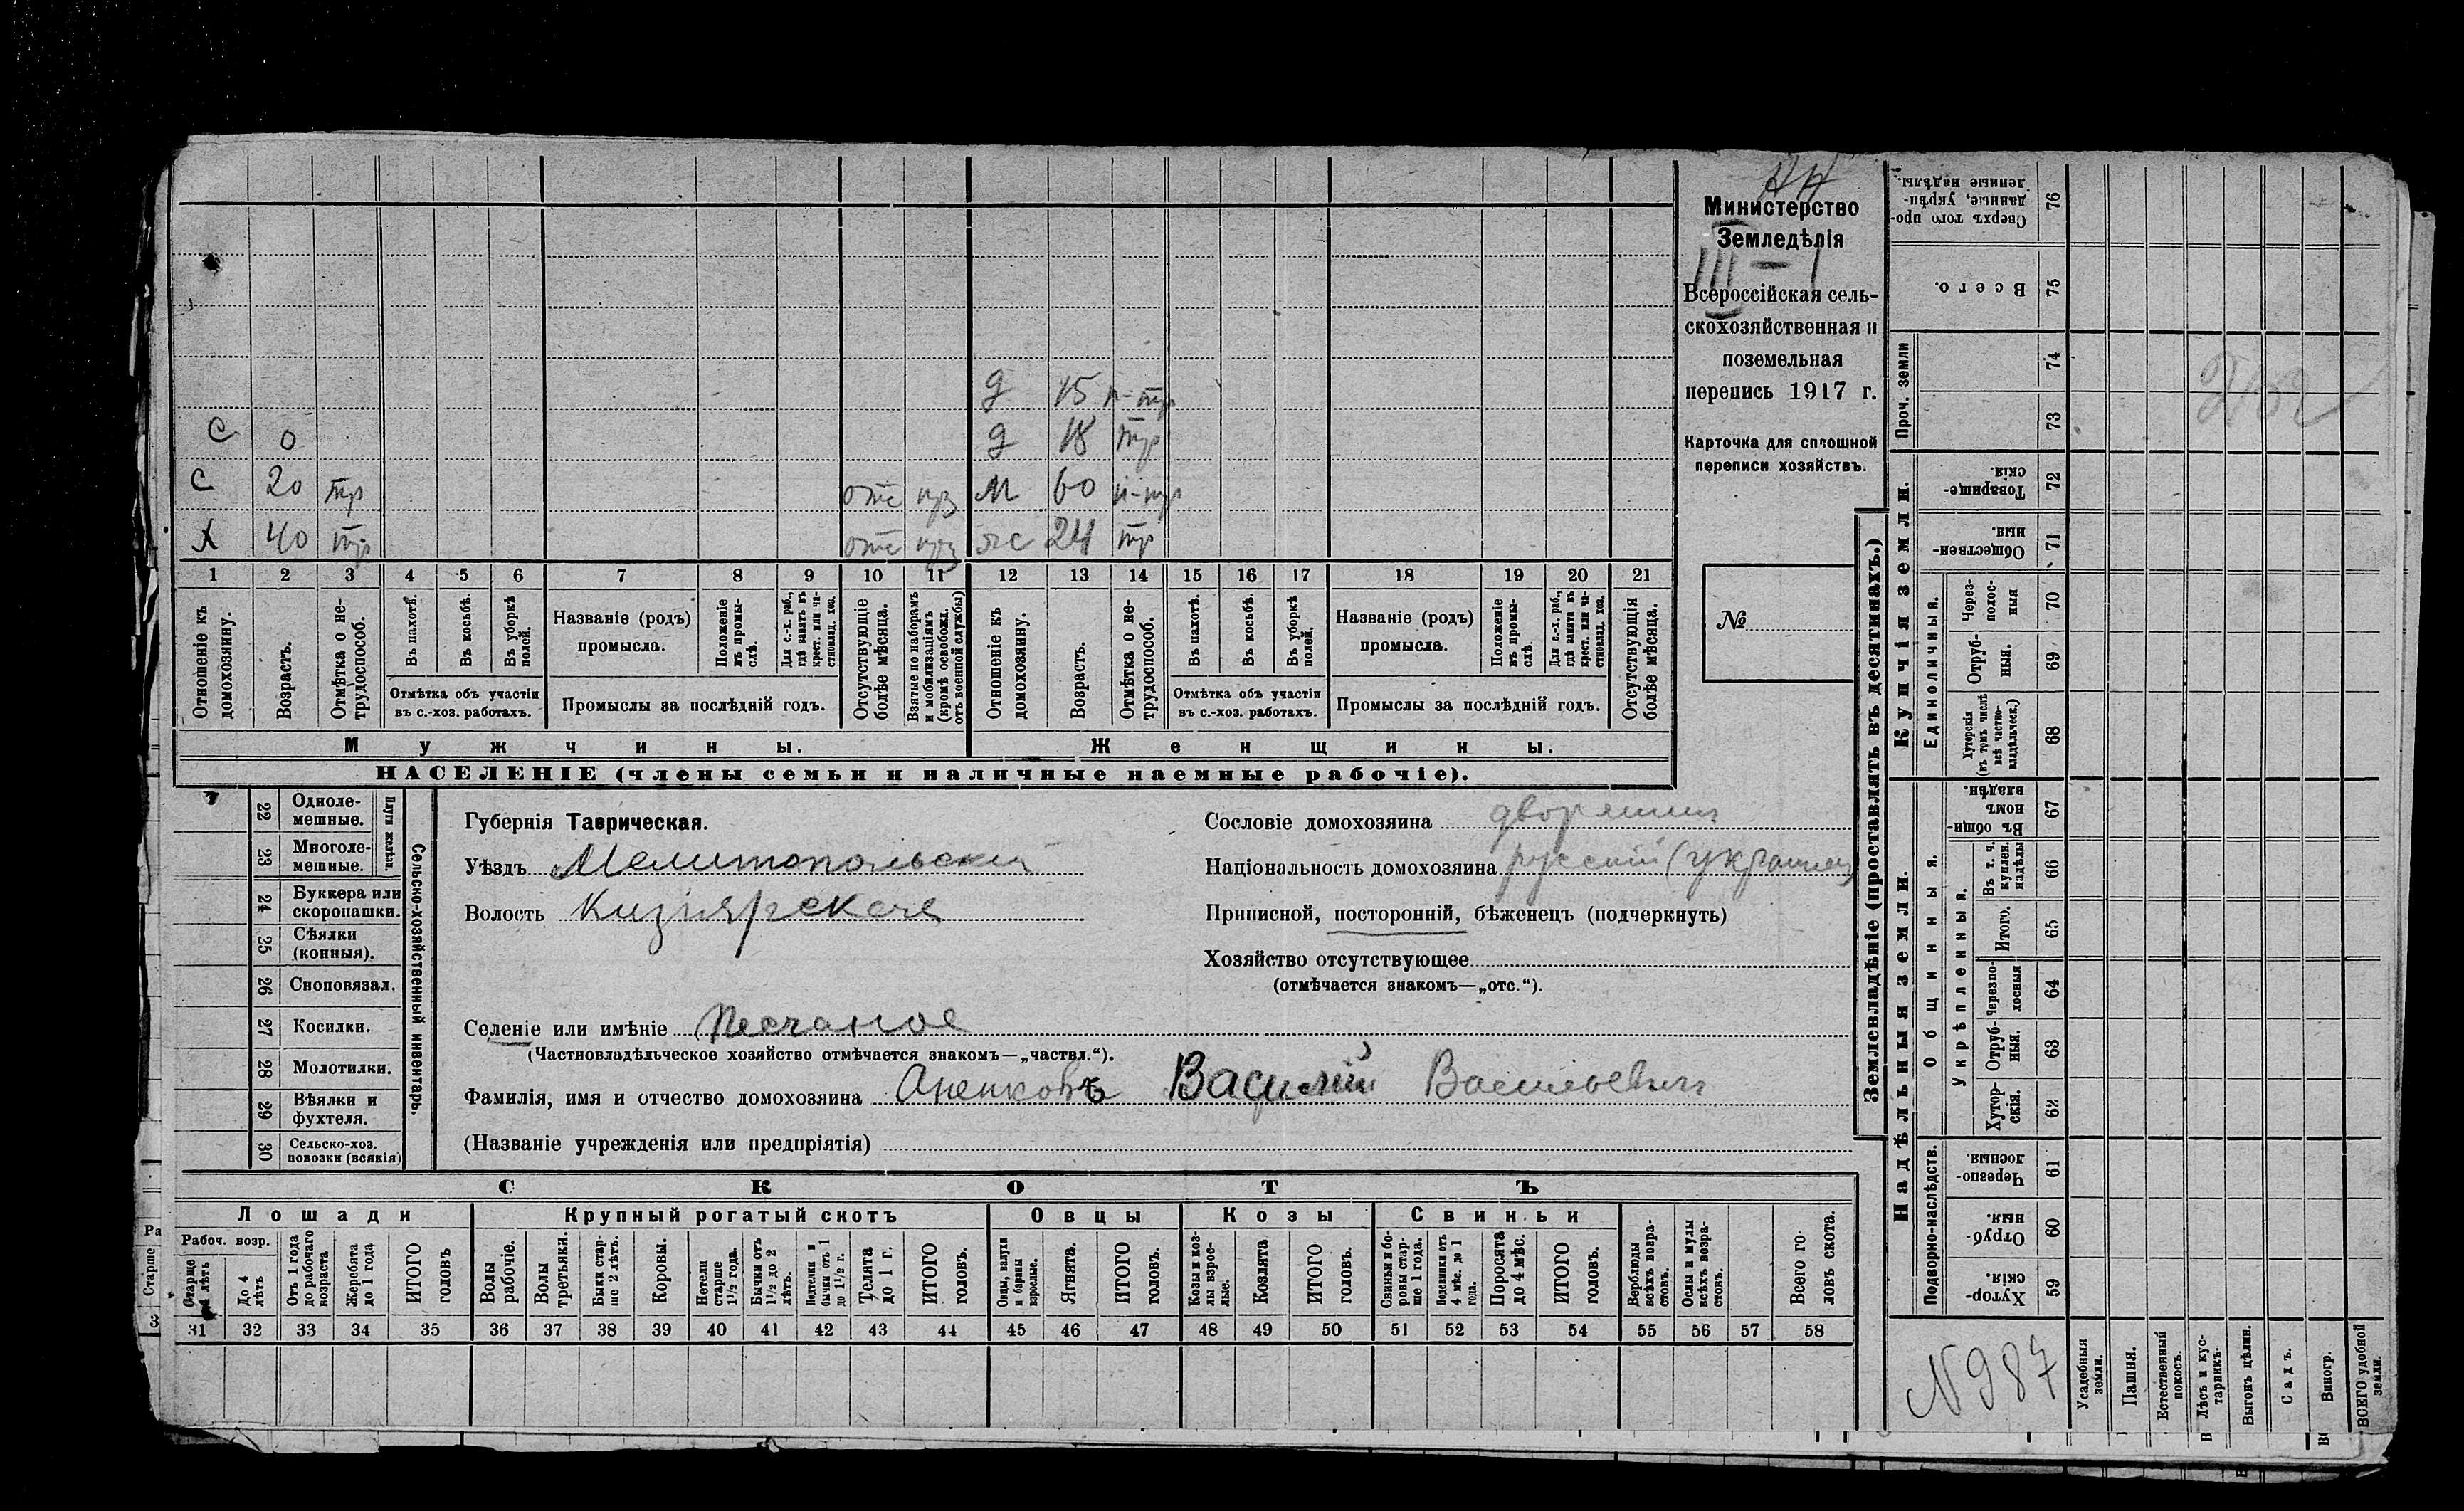 Министерство
Земледѣлія
III — I
Всероссійская сель-
скохозяйственная и
поземельная
перепись 1917 г.
Карточка для сплошной
переписи хозяйствъ.
№
д 15 п-тр
С 0 д 18 тр
С 20 тр отс прз М 60 п-тр
Х 40 тр отс прз жс 24 тр
1 2 3 4 5 6 7 8 9 10 11 12 13 14 15 16 17 18 19 20 21
Отношеніе къ домохозяину.
Возрастъ.
Отмѣтка о не-трудоспособ.
Въ пахотѣ.
Въ косьбѣ.
Въ уборкѣ полей.
Отмѣтка объ участіи
въ с.-хоз. работахъ.
Названіе (родъ)
промысла.
Положеніе въ промы-слѣ.
Для с.-х. раб., гдѣ занятъ въ крест. или ча-стновлад. хоз.
Промыслы за послѣдній годъ.
Отсутствующіе болѣе мѣсяца.
Взятые по наборамъ и мобилизаціямъ (кромѣ освобожд. отъ военной службы)
Отношеніе къ домохозяину.
Возрастъ.
Отмѣтка о не-трудоспособ.
Въ пахотѣ.
Въ косьбѣ.
Въ уборкѣ полей.
Отмѣтка объ участіи
въ с.-хоз. работахъ.
Названіе (родъ)
промысла.
Положеніе въ промы-слѣ.
Для с.-х. раб., гдѣ занята въ крест. или ча-стновлад. хоз.
Промыслы за послѣдній годъ.
Отсутствующія болѣе мѣсяца.
Мужчины. Женщины.
НАСЕЛЕНІЕ (члены семьи и наличные наемные рабочіе).
22 Одноле-мешные.
23 Многоле-мешные.
Плуги желѣзн.
24 Буккера или скоропашки.
25 Сѣялки (конныя).
26 Сноповязал.
27 Косилки.
28 Молотилки.
29 Вѣялки и фухтеля.
30 Сельско-хоз. повозки (всякія)
Сельско-хозяйственный инвентарь.
Губернія Таврическая.
Уѣздъ Мелитопольский
Волость Кизіярская
Селеніе или имѣніе Песчаное
(Частновладѣльческое хозяйство отмѣчается знакомъ—„частвл.“).
Фамилія, имя и отчество домохозяина Аненковъ Василий Васильевич
(Названіе учрежденія или предпріятія)
Сословіе домохозяина дворянин
Національность домохозяина русский (украинец)
Приписной, посторонній, бѣженецъ (подчеркнуть)
Хозяйство отсутствующее
(отмѣчается знакомъ—„отс.“).
СКОТЪ
Лошади Крупный рогатый скотъ Овцы Козы Свиньи
Рабоч. возр.
Старше 4 лѣтъ
До 4 лѣтъ
Отъ 1 года до рабочаго возраста
Жеребята до 1 года
ИТОГО головъ
Волы рабочіе.
Волы третьяки.
Быки стар-ше 2 лѣтъ.
Коровы.
Нетели старше 1½ года.
Бычки отъ 1½ до 2 лѣтъ.
Подтелки и бычки отъ 1 до 1½ г.
Телята до 1 г.
ИТОГО головъ.
Овцы, валухи и бараны взрослые.
Ягнята.
ИТОГО головъ.
Козы и коз-лы взрос-лые.
Козлята
ИТОГО головъ.
Свиньи и бо-ровы стар-ше 1 года.
Подсвинки отъ 4 мѣс. до 1 года.
Поросята до 4 мѣс.
ИТОГО головъ.
Верблюды всѣхъ возра-стовъ.
Ослы и мулы всѣхъ возра-стовъ.
Всего го-ловъ скота.
31 32 33 34 35 36 37 38 39 40 41 42 43 44 45 46 47 48 49 50 51 52 53 54 55 56 57 58
Землевладѣніе (проставлять въ десятинахъ.)
Купчія земли.
Надѣльныя земли.
Сверхъ того про-данные, укрѣп-ленные надѣлы. 76
Всего. 75
Проч. земли 74 73
Товарище-скія. 72
Обществен-ныя. 71
Единоличныя.
Через-полос-ныя 70
Отруб-ныя. 69
Хуторскія (въ томъ числѣ всѣ частно-владѣльческ.) 68
Общинныя.
Въ общин-номъ владѣн. 67
Укрѣпленныя.
Въ т. ч. куплен. надѣлы 66
Итого. 65
черезпо-лосныя 64
Отруб-ныя. 63
Хутор-скія. 62
Подворно-наслѣдств.
Черезпо-лосныя. 61
Отруб-ныя. 60
Хутор-скія. 59
N 987
Усадебныя земли.
Пашня.
Естественный покосъ.
Лѣсъ и кус-тарникъ.
Выгонъ цѣлин.
Садъ.
Виногр.
ВСЕГО удобной земли.